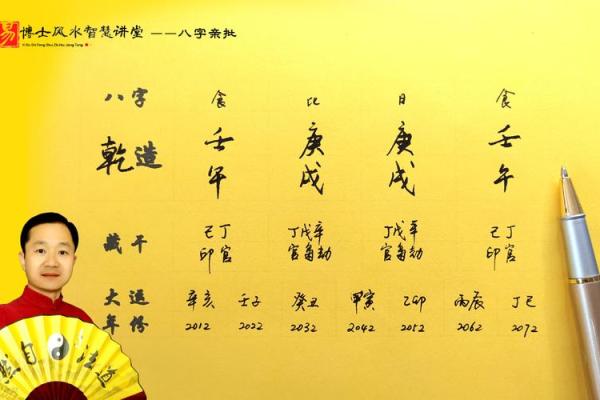 易 博士风水智慧讲堂 ——八字亲批
八字 食 比 日 食
乾造 壬午 庚戌 庚戌 壬午
藏干 己丁 丁戊辛 丁戊辛 己丁
印官 官枭劫 官枭劫 印官
大运 辛亥 壬子 癸丑 甲寅 乙卯 丙辰 丁巳
年份 2012 2022 2032 2042 2052 2062 2072
然自法道